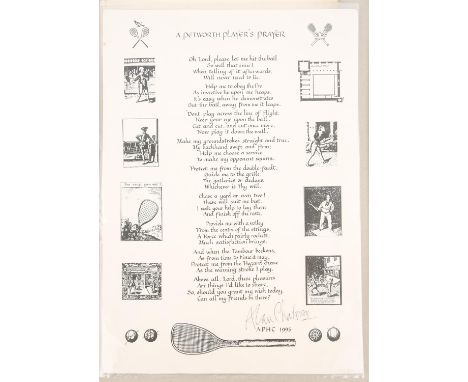 A PETWORTH PLAYER'S PRAYER
Oh Lord, please let me hit the ball
So well that once I
When telling of it afterwards
Will never need to lie.
Help me to obey the
As inventive he upon me heaps.
It's easy when he demonstrates
Out the ball away from me it leaps.
Don't play across the line of flight,
Keep your eye upon the ball,
Cut and cut, and cut once more,
Now play it down the wall.
Make my groundstrokes straight and true,
My backhand swift and firm;
Help me choose a service
To make my opponent squirm.
Protect me from the double-fault,
Guide me to the grille
The galleries or dedans
Whichever is Thy will.
Chase a yard or even two?
These will suit me best.
I ask your help to lay them
And finish off the rest.
Provide me with a volley
From the centre of the strings,
A Force which fairly rockets
Much satisfaction brings.
And when the Tambour beckons,
As from time to time it may,
Protect me from the Hazard
As the winning stroke I play.
Above all, Lord, these pleasures
Are things I'd like to share,
So, should you grant my wish today,
Can all my friends be there?
APHC 1995